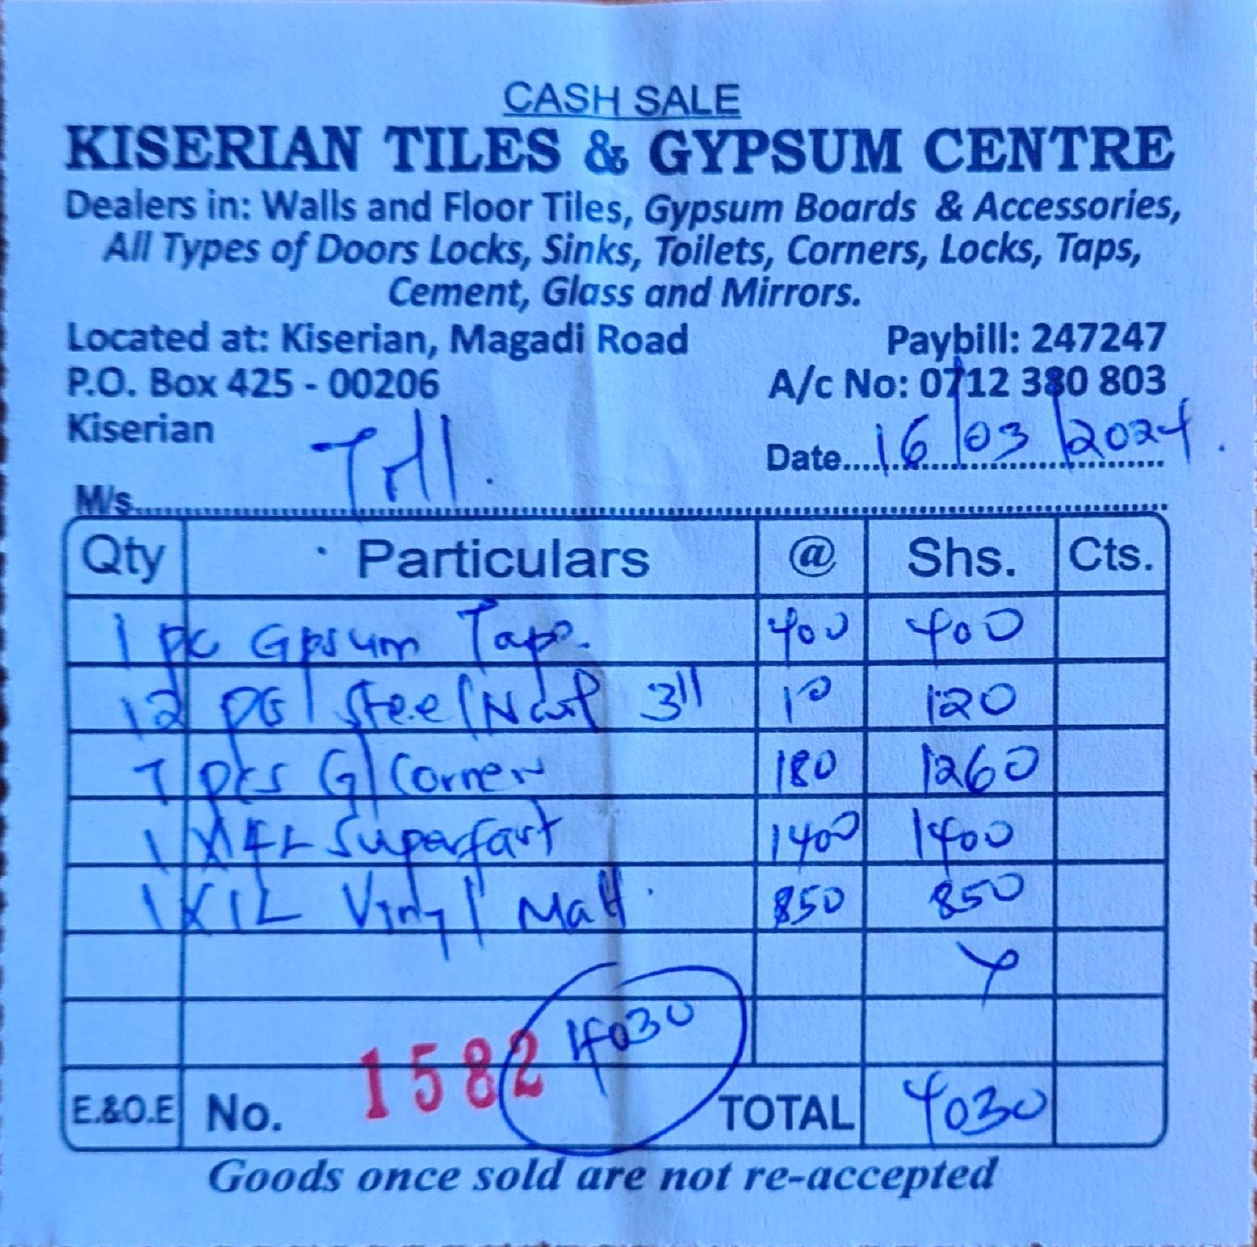 CASH SALE
KISERIAN TILES & GYPSUM CENTRE
Dealers in: Walls and Floor Tiles, Gypsum Boards & Accessories,
All Types of Doors Locks, Sinks, Toilets, Corners, Locks, Taps,
Cement, Glass and Mirrors.
Located at: Kiserian, Magadi Road Paybill: 247247
P.O. Box 425 - 00206 A/c No: 0712 380 803
Kiserian
Date 16/03/2024
M/s
Qty Particulars @ Shs. Cts.
1 pc Gpsum Tape 400 400
12 Steel 3" 10 120
7 pcs G/Corner 180 1260
1 X 4L Superfast 1400 1400
1 X 1L Vinyl Matt 850 850
4030
E.&O.E No. 1582 TOTAL 4030
Goods once sold are not re-accepted